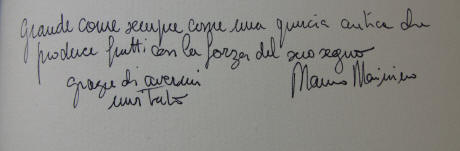 Grande come sempre come una quercia antica che
produce frutti con la forza del suo segno
grazie di avermi
invitato
Mauro